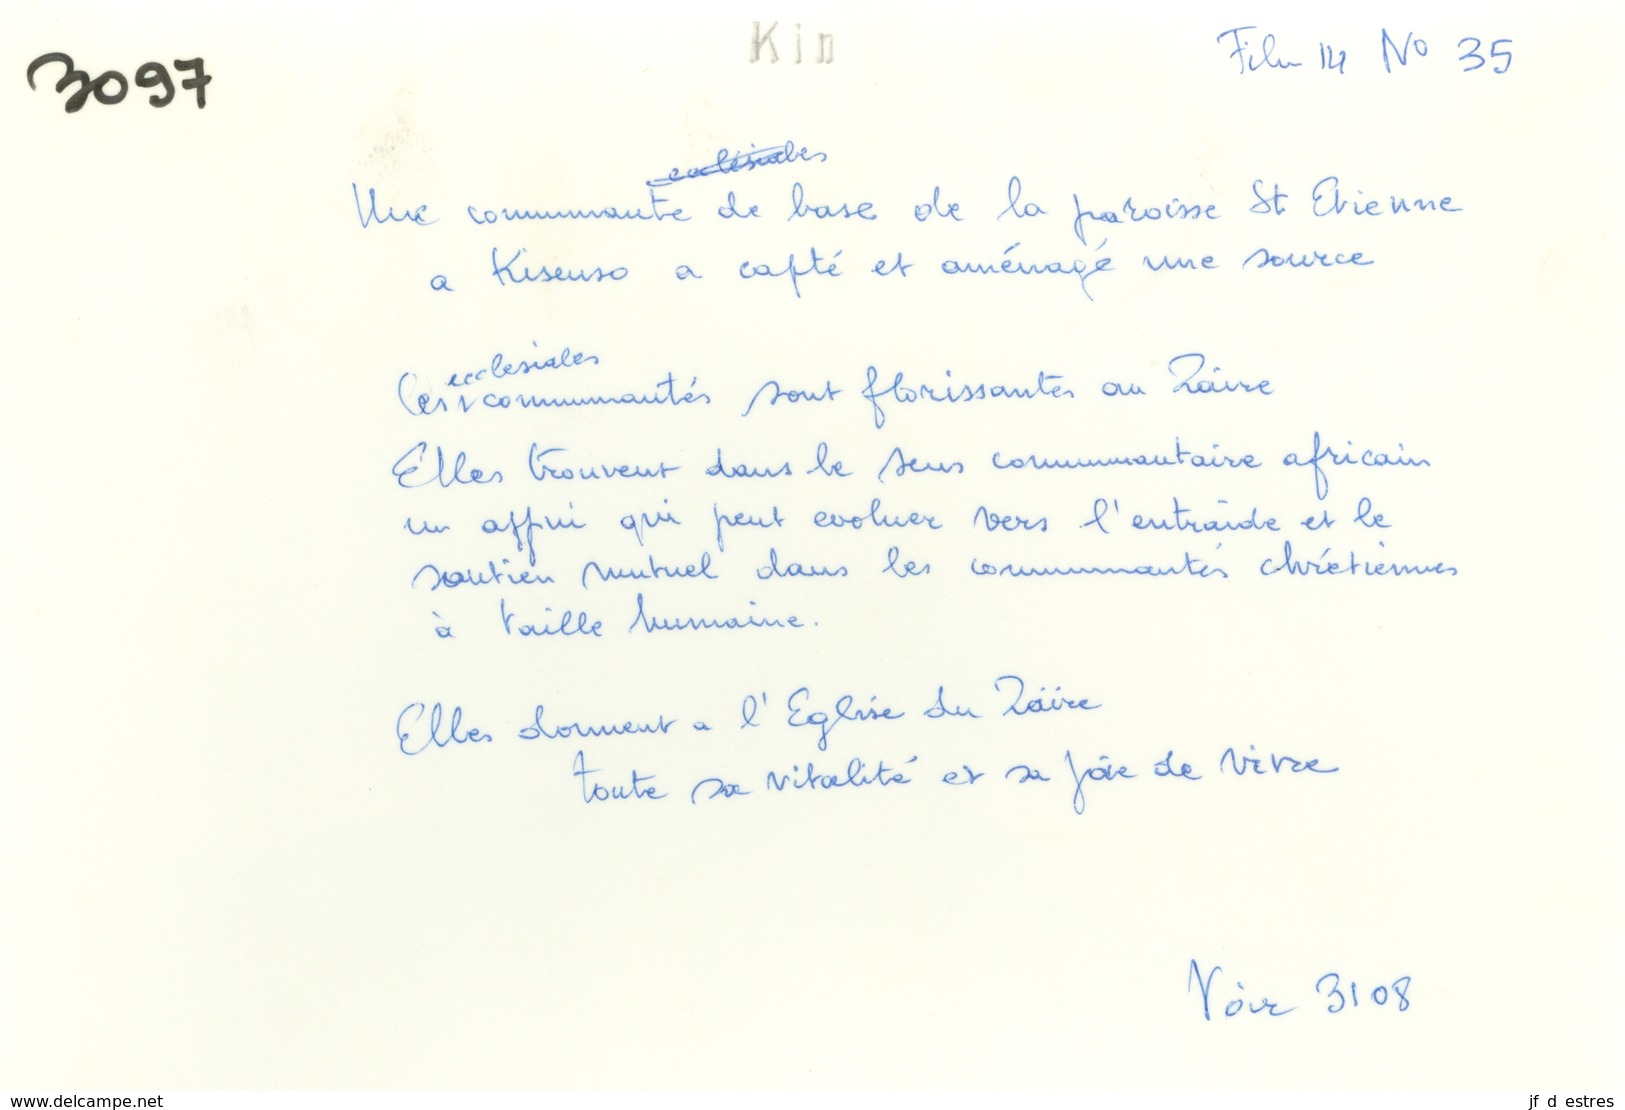 3097
Kin
Film 14 No 35
ecclésiales
Une communauté de base de la paroisse St Etienne
a Kisenso a capté et aménagé une source
ecclesiales
Ces communautés sont florissantes au Zaïre
Elles trouvent dans le sens communautaire africain
un appui qui peut evoluer vers l'entraide et le
soutien mutuel dans les communautés chrétiennes
à taille humaine.
Elles donnent a l'Eglise du Zaïre
toute sa vitalité et sa joie de vivre
Voir 3108
www.delcampe.net
jf d estres